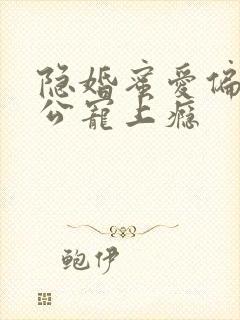 隐婚蜜爱偏
公宠上瘾
鲍伊